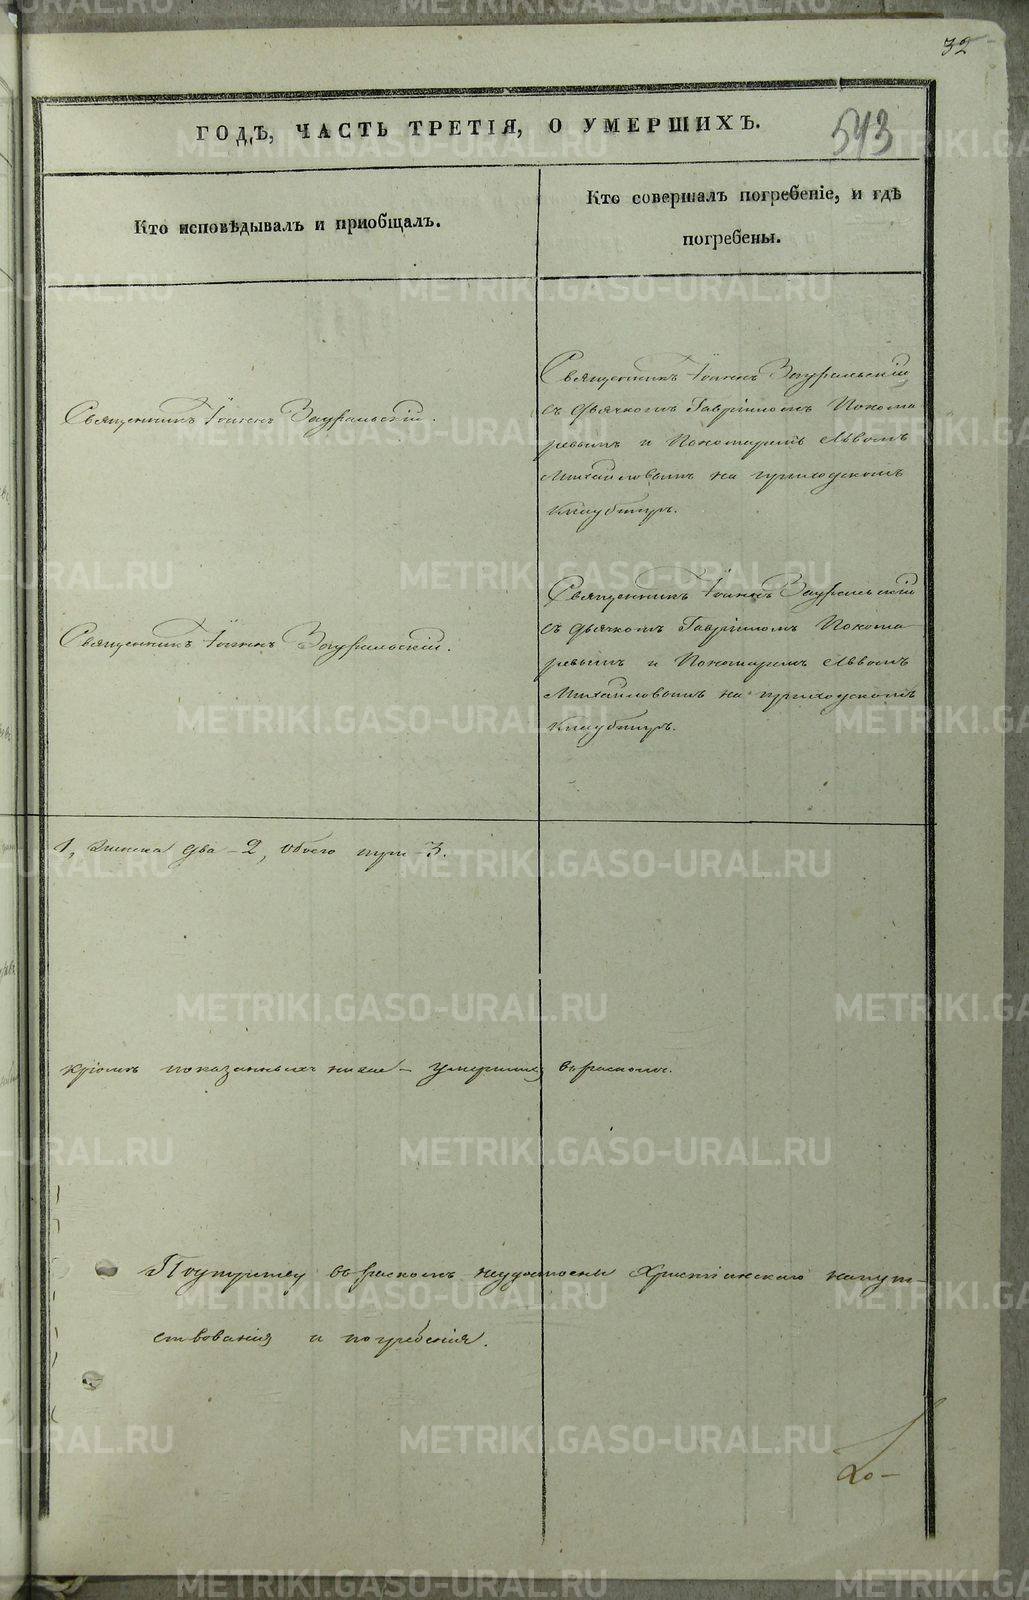 32
ГОДЪ, ЧАСТЬ ТРЕТІЯ, О УМЕРШИХЪ.
543
Кто исповѣдывалъ и приобщалъ.
Кто совершалъ погребеніе, и гдѣ
погребены.
Священникъ Іоаннъ Зауральскій.
Священникъ Іоаннъ Зауральскій
съ дьячкомъ Гавріиломъ Понома
ревымъ и Пономаремъ Львомъ
Михайловымъ на приходскомъ
кладбищѣ.
Священникъ Іоаннъ Зауральскій.
Священникъ Іоаннъ Зауральскій
съ дьячкомъ Гавріиломъ Понома
ревымъ и Пономаремъ Львомъ
Михайловымъ на приходскомъ
кладбищѣ.
1, женска два – 2, обоего – 3.
кромѣ показанныхъ ниже – умершихъ въ расколѣ.
въ расколѣ неудостоены Христіанскаго напут–
ствованія и погребенія.
METRIKI.GASO-URAL.RU